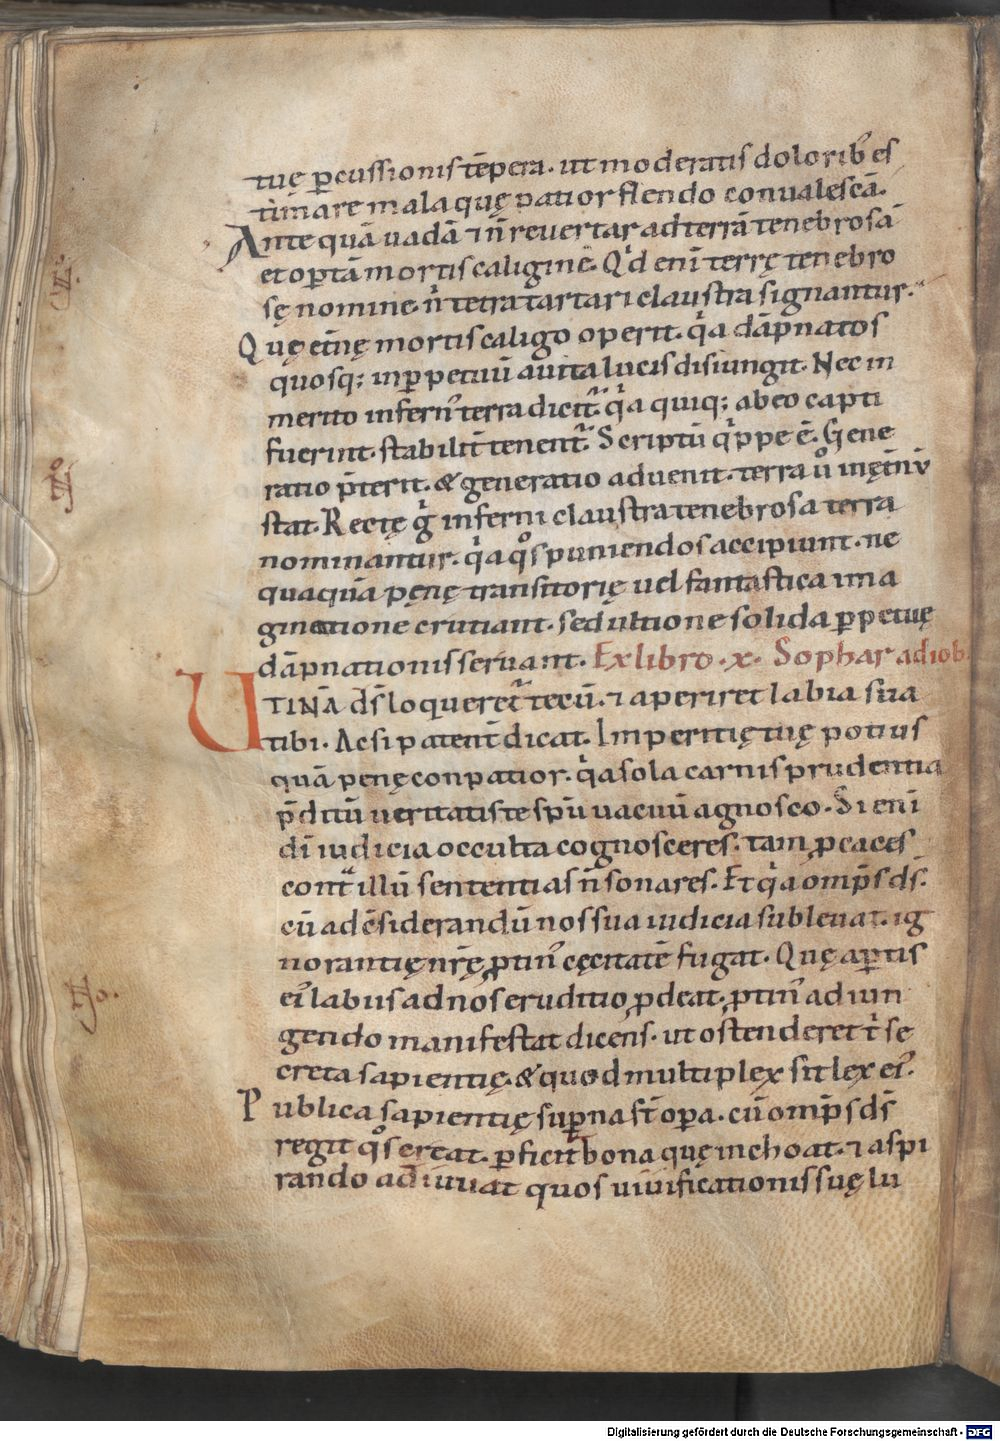 tuę ꝑcussionis tēpera. ut moderatis dolorib᾿ es
timare mala quę patior flendo conualescā.
Ante quā uadā ⁊ n̄ reuertar ad terrā tenebrosā
et oꝑtā mortis caligine. Qͥd enī terrę tenebro
sę nomine. n̄ tetra tartari claustra signantur.
Quę etͤnę mortis caligo operit. qͥa dāpnatos
quosq; inꝑpetuū a uita lucis disiungit. Nec in
merito infern᾿ terra dicit᷑. qͥa quiq; ab eo capti
fuerint. stabilit̄ tenent᷑. Scriptū qͥppe ē. Gene
ratio p̄terit. & generatio aduenit. terra ů in ętͤnū
stat. Rectę gͥ inferni claustra tenebrosa terra
nominantur. qͥa qͦs puniendos accipiunt. ne
quaquā pęnę transitorię uel fantastica ima
ginatione cruciant. sed ultione solida ꝑpetuę
dāpnationis seruant. Ex libro. x. Sophar ad iob.
UTINĀ ds̄ loqueret᷑ tecū. ⁊ aperiret labia sua
tibi. Ac si patent̄ dicat. Imperitię tuę potius
quā penę conpatior. qͥa sola carnis prudentia
p̄ditū ueritatis te spū uacuū agnosco. Si enī
dī iudicia occulta cognosceres. tam ꝓcaces
contᷓ illū sententias n̄ sonares. Et qͥa omp̄s ds̄.
cū ad c̄siderandū nos sua iudicia subleuat. ig
norantię nrę̄ ꝓtin᾿ cęcitatē fugat. Quę aꝑtis
ei᾿ labiis ad nos eruditio ꝓdeat. ꝓtin᾿ adiun
gendo manifestat dicens. ut ostenderet tͥ se
creta sapientię. & quod multiplex sit lex ei᾿.
Publica sapientię suꝑna st̄ opa. cū omp̄s ds̄
regit qͦs creat. ꝑficit bona quę inchoat. ⁊ aspi
rando adiuuat quos uiuificationis suę lu
Digitalisierung gefördert durch die Deutsche Forschungsgemeinschaft - DFG